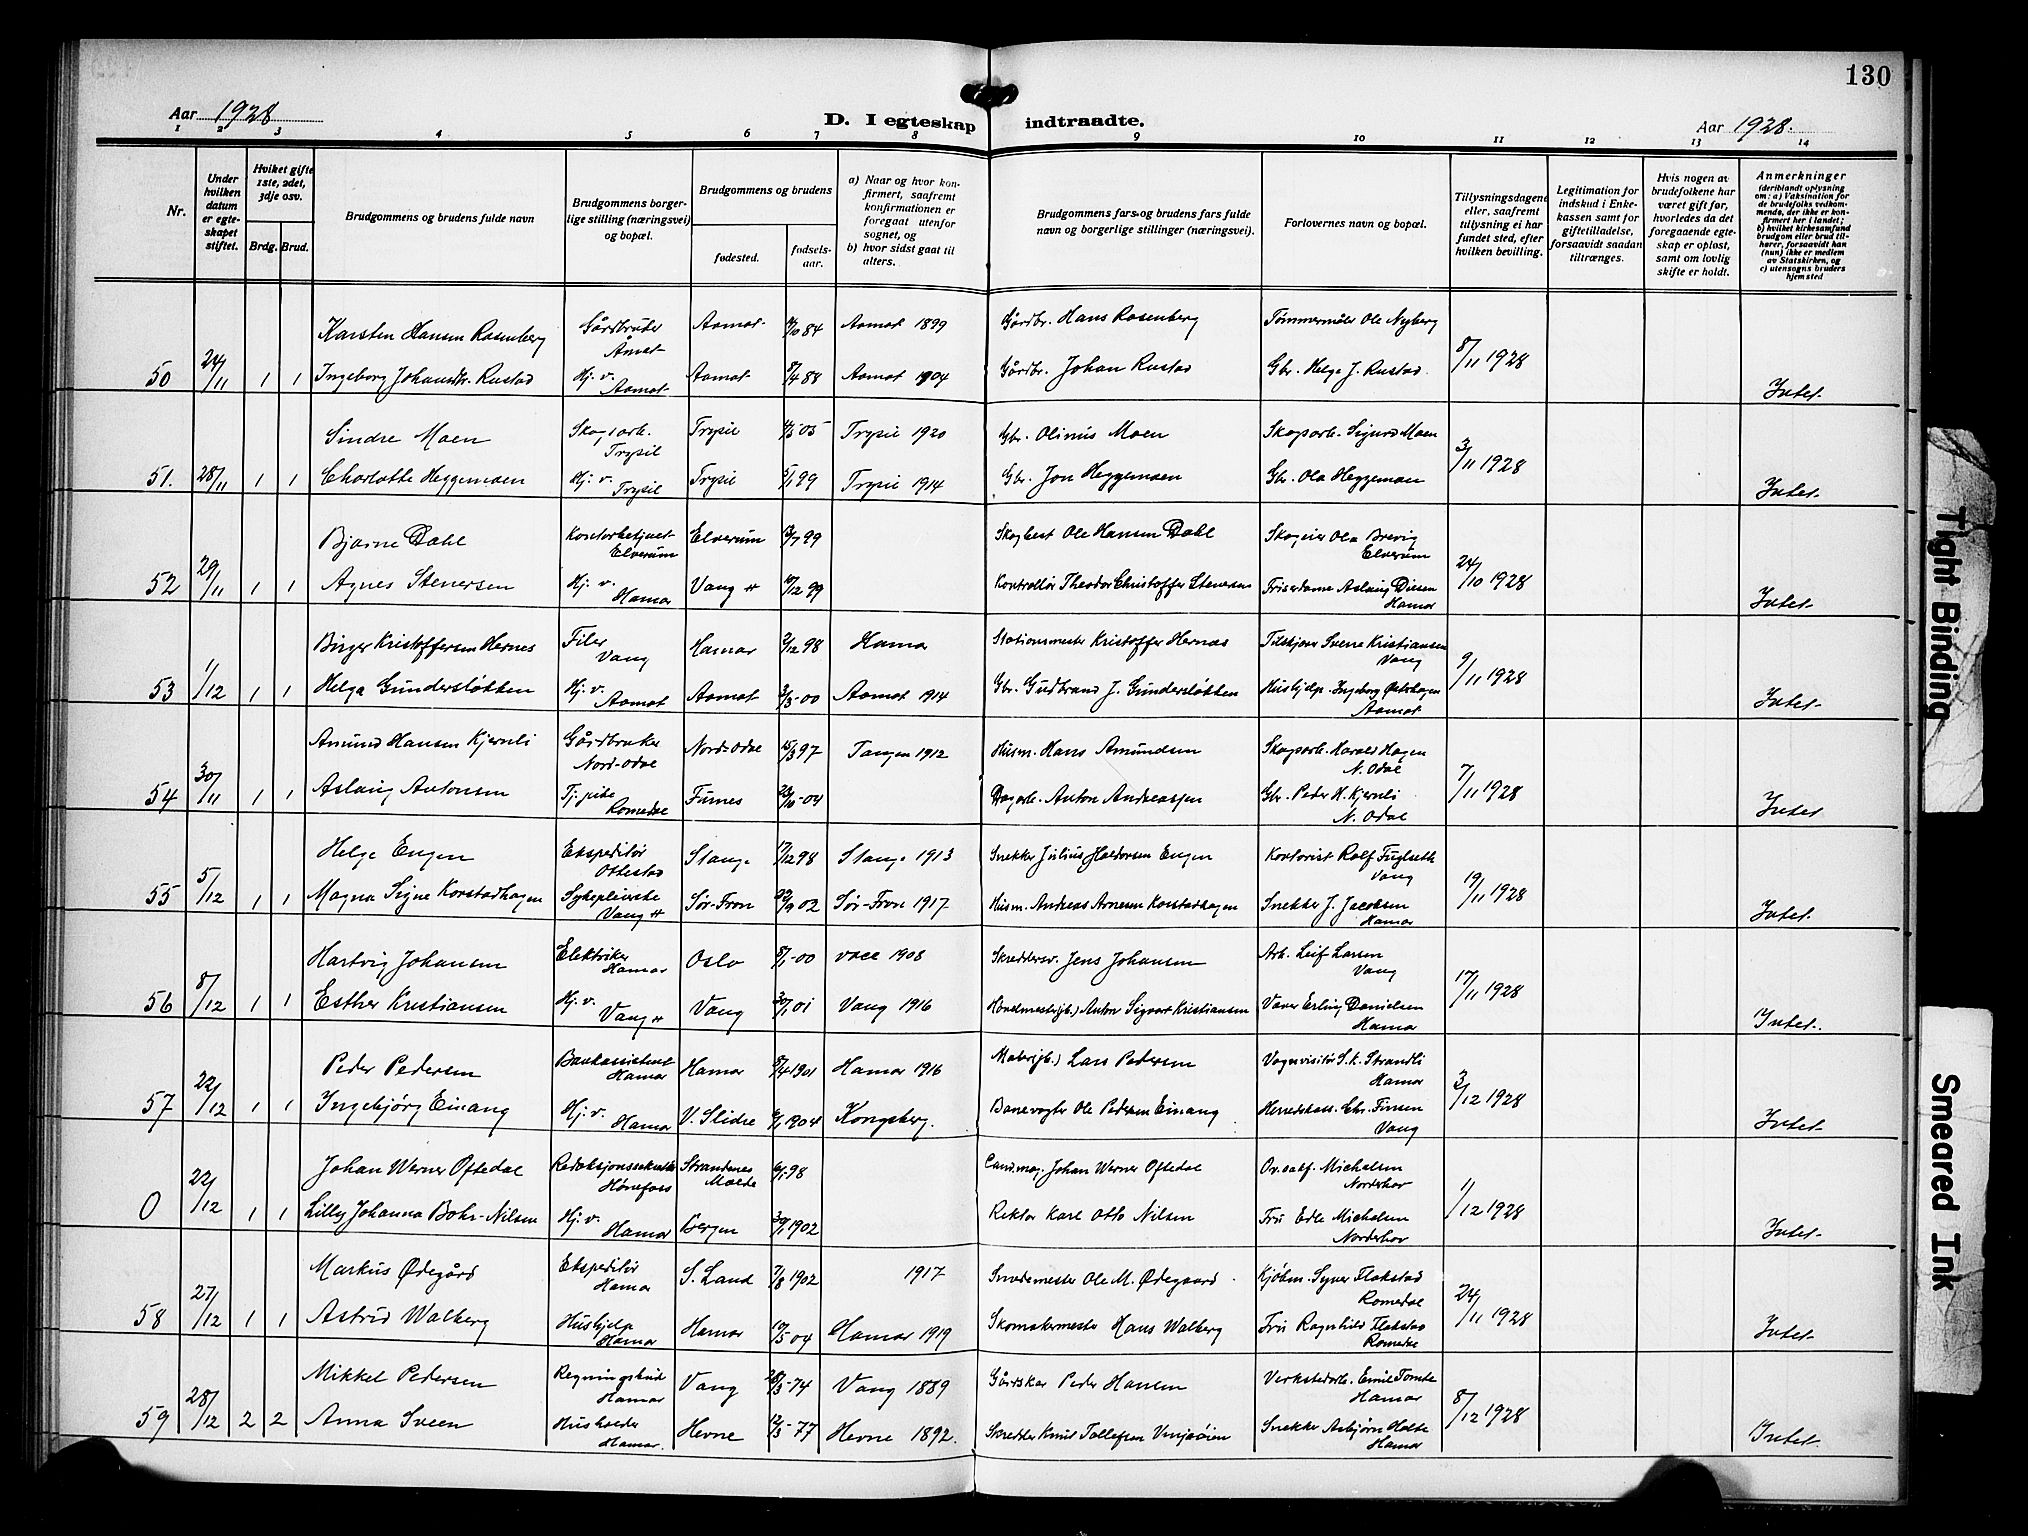 130
Aar 1928
D. I egteskap indtraadte.
Aar 1928.
1 2 3 4 5 6 7 8 9 10 11 12 13 14
Nr.
Under hvilken datum er egteskapet stiftet.
Hviket gifte 1ste, 2det, 3dje osv.
Brdg. Brud.
Brudgommens og brudens fulde navn
Brudgommens borgerlige stilling (næringsvei) og bopæl.
Brudgommens og brudens
fødested.
fødselsaar.
a) Naar og hvor konfirmert, saafremt konfirmationen er foregaat utenfor sognet, og
b) hvor sidst gaat til alters.
Brudgommens fars og brudens fars fulde navn og borgerlige stillinger (næringsvei).
Forlovernes navn og bopæl.
Tillysningsdagene eller, saafremt tillysning ei har fundet sted, efter hvilken bevilling.
Legitimation for indskud i Enkekassen samt for giftetilladelse, forsaavidt saadan tiltrænges.
Hvis nogen av brudefolkene har været gift før, hvorledes da det foregaaende egteskap er opløst, samt om lovlig skifte er holdt.
Anmerkninger
(deriblandt oplysning om: a) Vaksination for de brudefolks vedkommende, der ikke er konfirmert her i landet; b) hvilket kirkesamfund brudgom eller brud tilhører, forsaavidt han (hun) ikke er medlem av Statskirken, og c) utensogns bruders hjemsted
Karsten Hansen Rosenberg Gårdbruker Åmot Aamot 4/10 84 Aamot 1899 Gårdbr. Hans Rosenberg Tømmermåler Ole Nyberg
50 24/11 1 1 Ingeborg Johansdtr. Rustad Hj. v. Aamot Aamot 8/4 88 Aamot 1904 Gårdbr. Johan Rustad Gbr. Helge J. Rustad. 8/11 1928 Intet
Sindre Moen Skogsarb. Trysil Trysil 4/5 05 Trysil 1920 Gbr. Olinus Moen Skogsarb. Sigurd Moen
51. 28/11 1 1 Charlotte Heggemoen Hj. v. Trysil Trysil 5/1 99 Trysil 1914 Gbr. Jon Heggemoen Gbr. Ola Heggemoen 3/11 1928 Intet
Bjarne Dahl Kontorbetjent Elverum Elverum 13/7 99 Skogbest Ole Hansen Dahl Skogeier Ola Brevig Elverum
52 29/11 1 1 Agnes Stenersen Hj. v. Hamar Vang H 17/12 99 Kontrollør Theodor Christoffer Stenersen Friserdame Aslaug Diesen Hamar 24/10 1928 Intet
Birger Kristoffersen Hernes Filer Vang Hamar 2/12 98 Hamar Stationsmester Kristoffer Hernæs Tilskjærer Sverre Kristiansen Vang
53 1/12 1 1 Helga Gundersløkken Hj. v. Aamot Aamot 2/3 00 Aamot 1914 Gbr. Gudbrand J. Gundersløkken Hushjelp Ingeborg Østerhagen Aamot 9/11 1928 Intet
Amund Hansen Kjernli Gårdbruker Nord-Odal Nord-Odal 15/3 97 Tangen 1912 Husm. Hans Amundsen Skogsarb. Harald Hagen N. Odal
54 30/11 1 1 Aslaug Antonsen Tj. pike Romedal Furnes 23/10 04 Dagarb. Anton Andreassen Gbr. Peder H. Kjernli N. Odal 7/11 1928 Intet
Helge Engen Ekspeditør Ottestad Stange 17/12 98 Stange 1913 Snekker Julius Haldorsen Engen Kontorist Rolf Fuglseth Vang
55 5/12 1 1 Magna Signe Korstadhagen Sykepleierske Vang H Sør-Fron 22/9 02 Sør-Fron 1917 Husm. Andreas Arnesen Korstadhagen Snekker J. Jacobsen Hamar 19/11 1928 Intet.
Hartvig Johansen Elektriker Hamar Oslo 8/1 00 1908 Skreddersv. Jens Johansen Arb. Leif Larsen Vang
56 8/12 1 1 Esther Kristiansen Hj. v. Vang H Vang 30/1 01 Vang 1916 Anton Sigvart Kristiansen Væver Erling Danielsen Hamar 17/11 1928 Intet.
Peder Pedersen Bankassistent Hamar Hamar 5/4 1901 Hamar 1916 Lars Pedersen Vognvisitør S. K. Strandli Hamar
57 22/12 1 1 Ingebjørg Einang Hj. v. Hamar V. Slidre 6/1 1904 Kongsberg. Banevogter Ole Pedersen Einang Herredskass. Chr. Finsen Vang 3/12 1928 Intet
Johan Werner Oftedal Redaksjonssekretær Hønefoss Strandenes Molde 6/1 98 Cand. mag. Johan Werner Oftedal Ov. salf. Michalsen Norderhov
0 22/12 1 1 Lilly Johanna Bohr-Nilsen Hj. v. Hamar Bergen 30/1 1902 Rektor Karl Otto Nilsen Fru Edle Michalsen Norderhov 11/12 1928 Intet
Markus Ødegård Ekspeditør Hamar S. Land 7/8 1902 1917 Smedemester Ole M. Ødegaard Kjøbm. Syver Flakstad Romedal
58 27/12 1 1 Astrid Walberg Hushjelp Hamar Hamar 10/5 04 Hamar 1919 Skomakermester Hans Walberg Fru Ragnhild Flakstad Romedal 24/11 1928 Intet
Mikkel Pedersen Regningsbud Hamar Vang 28/3 74 Vang 1889 Gårdskar Peder Hansen Verkstedarb. Emil Tomte Hamar
59 28/12 2 2 Anna Sveen Hamar. Hevne 12/3 77 Hevne 1892. Skredder Knut Tollefsen Snekker Asbjørn Holte Hamar 8/12 1928 Intet
Tight Binding
Smeared Ink